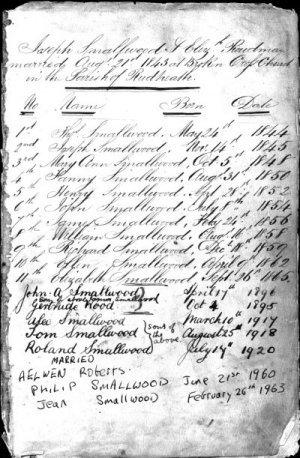 Joseph Smallwood & Eliz.th Rowdman
married Aug. 21st 1843 at Church
in the Parish of Rudheath.
No Name Born Date
1st Smallwood, May 24th, 1844
2nd Joseph Smallwood, Nov. 14th, 1845
3rd Mary Ann Smallwood, Oct. 5th, 1848
4th Fanny Smallwood, Aug. 31st, 1850
5th Henry Smallwood, Apl. 28th, 1852
6th John Smallwood, July 8th, 1854
7th James Smallwood, Feb. 24th, 1856
8th William Smallwood, Aug. 1858
9th Richard Smallwood, Dec. 18th, 1859
10th Smallwood, April 9th, 1862
11th Elizabeth Smallwood, Sept. 26th, 1865
John Smallwood April 17th 1896
Smallwood
Gertrude Hood Oct 4 1895
Smallwood March 10th 1917
Tom Smallwood sons of the above. August 25th 1918
Roland Smallwood July 14th 1920
MARRIED
AELWEN Roberts.
PHILIP SMALLWOOD June 21st 1960
Jean Smallwood February 26th 1963